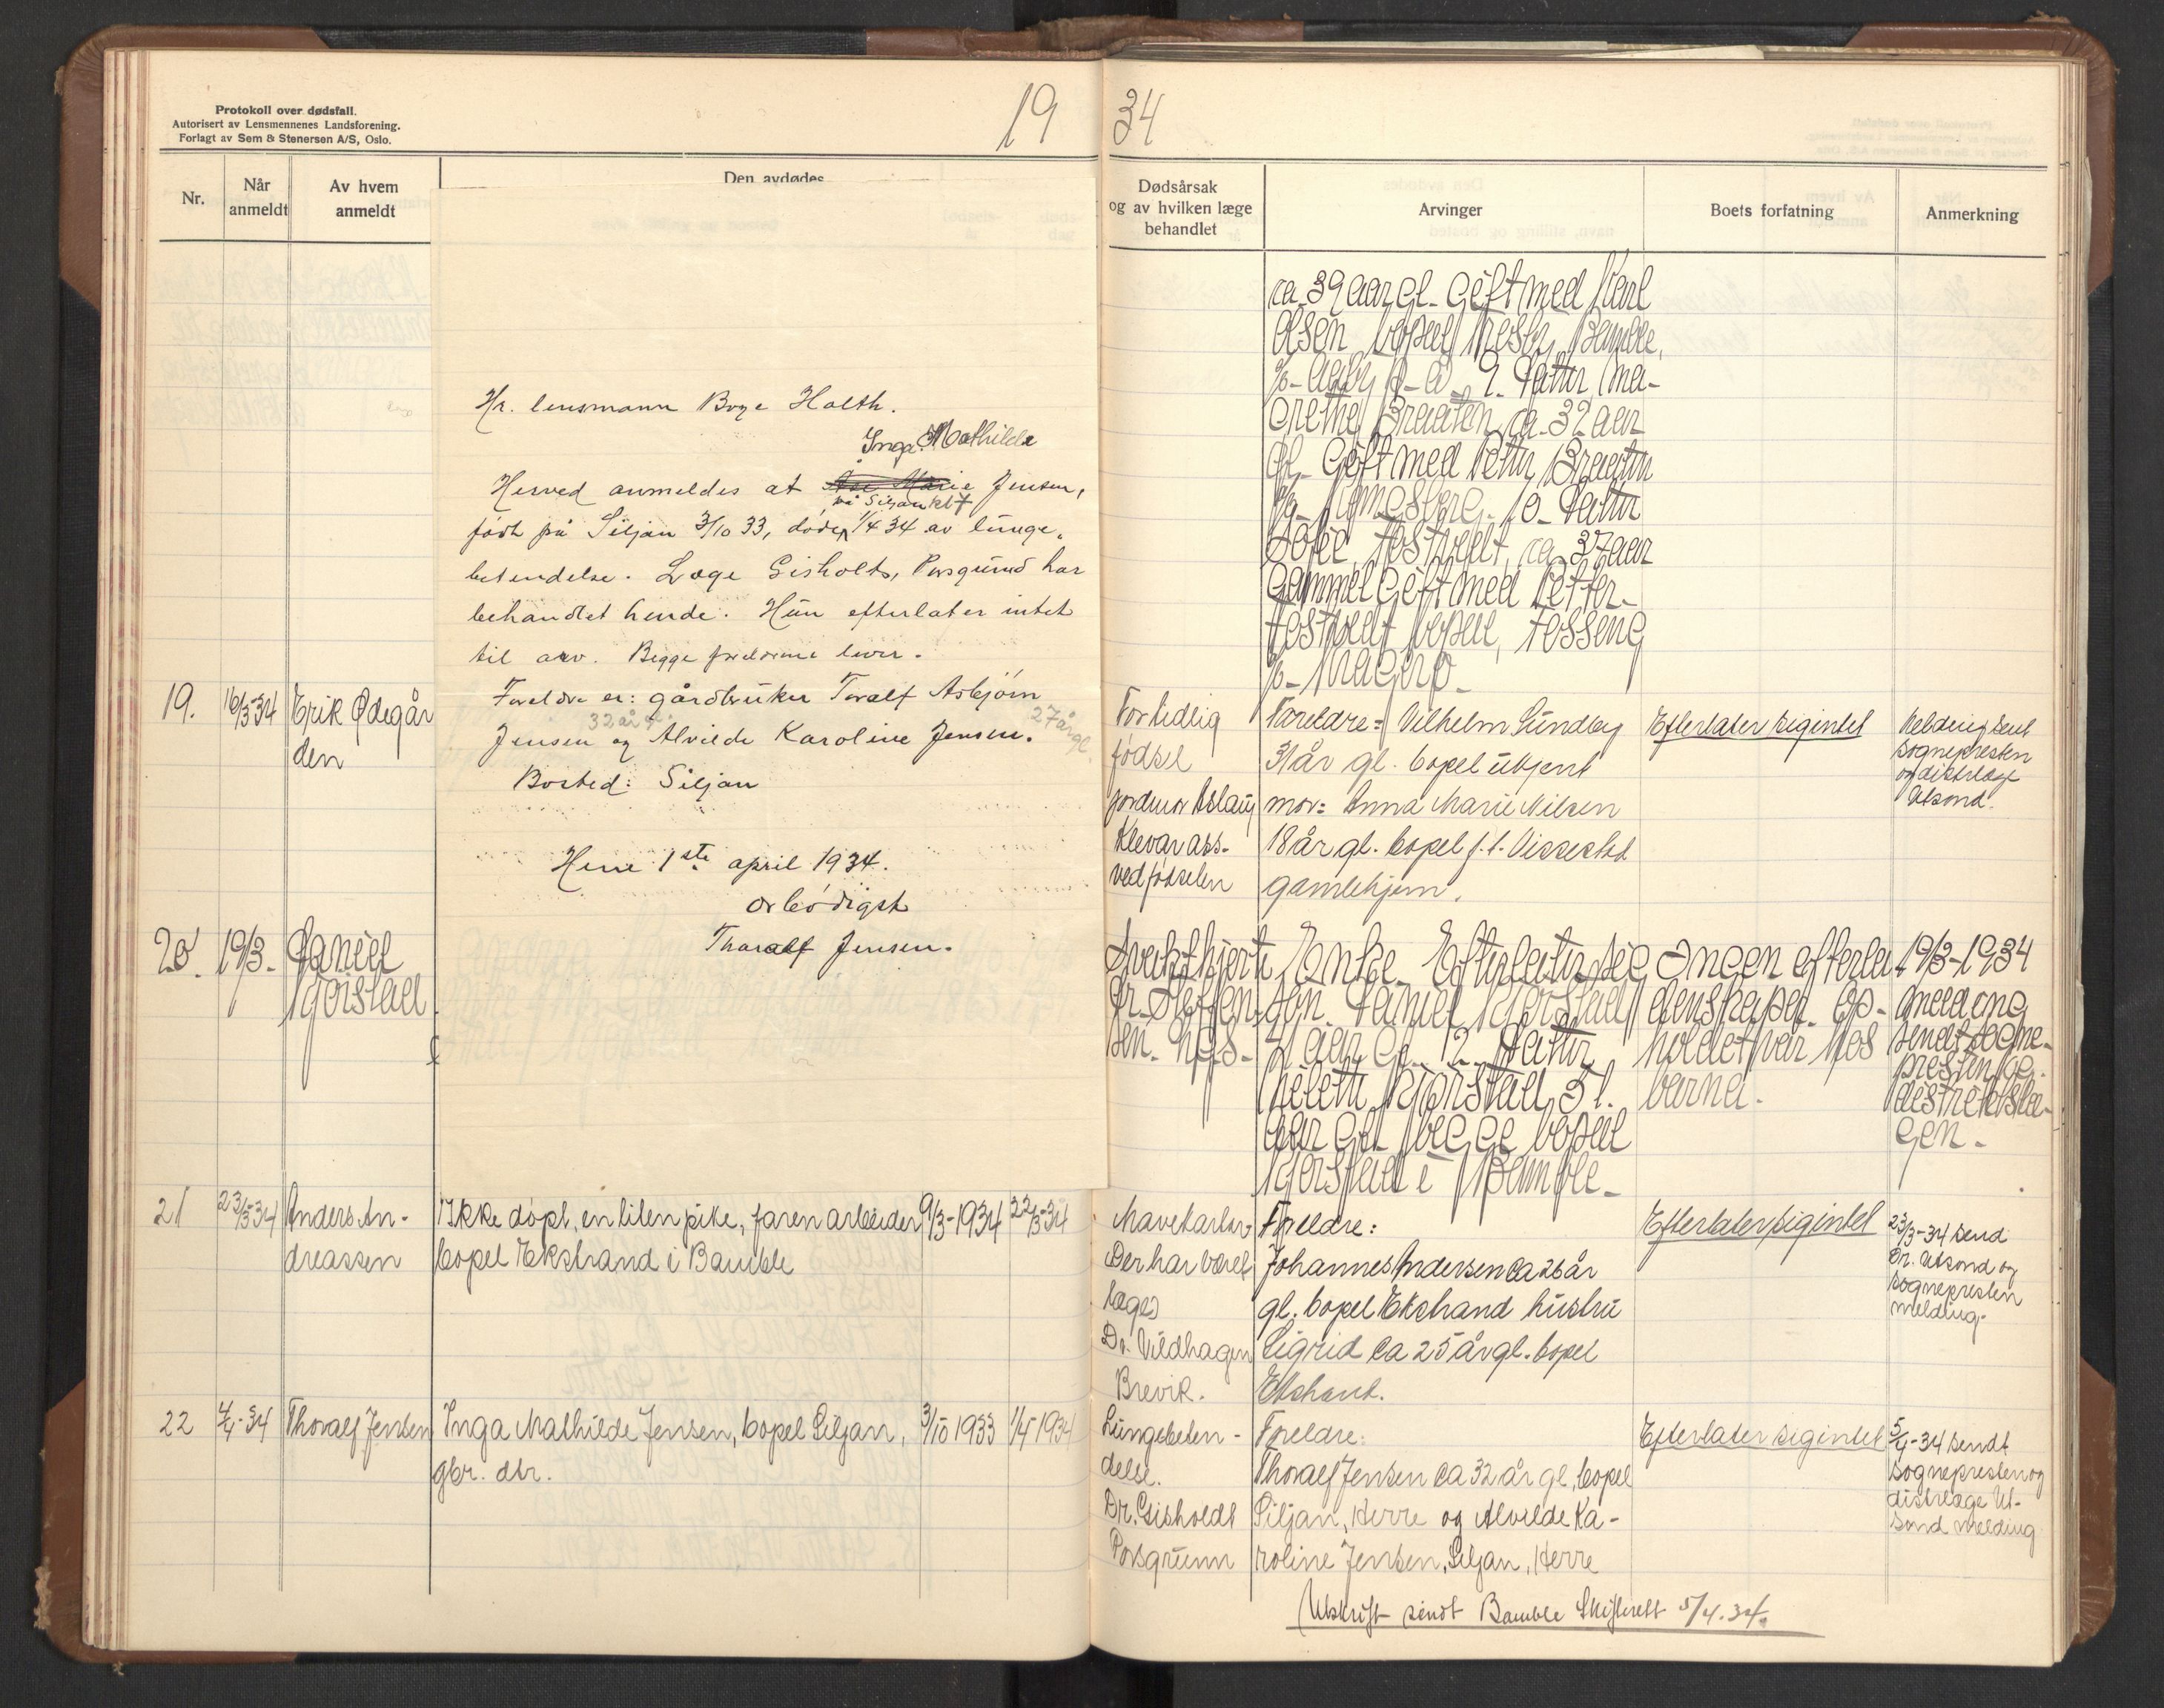 Protokoll over dødsfall.
Autorisert av Lensmennenes Landsforening.
Forlagt av Sem & Stenersen A/S, Oslo.
19
34
Nr.
Når anmeldt
Av hvem anmeldt
Den avdødes
Dødsårsak og av hvilken læge behandlet
Arvinger
Boets forfatning
Anmerkning
Hr. lensmann Boye Holth.
Inga Mathilde
Herved anmeldes at Jensen,
på Siljan
født på Siljan 3/10 33, døde 1/4 34 av lunge-
betendelse. Læge Gisholts, Porsgrund har
behandlet hende. Hun efterlater intet
til arv. Begge foreldrene lever.
Foreldre er: gårdbruker Toralf Asbjørn
32 år
27 år gl.
Jensen og Alvilde Karoline Jensen.
Bosted: Siljan
Herre 1ste april 1934.
ærbødigst
Tharalf Jensen.
ca. 39 aar gl. Gift med Karl
Olsen bopæl Bamble,
9. Datter Ma-
grethe Braaten ca. 32 aar
gl. Gift med Petter Braaten
10. Datter
Sofie Tostvedt, ca 37 aar
Gammel Gift med Petter
Tostvedt bopæl, Fosseng
19.
16/3-34
Erik Ødegår
den
For tidlig
fødsel
jordmor Aslaug
Klevar ass.
ved fødselen
Foreldre = Vilhelm Sundby
31 år gl. bopel ukjent
mor = Anna Marie Nilsen
18 år gl. bopel f.t. Vissestad
gamlehjem.
Efterlater sig intet
Melding sent
sognepresten
og distrlæge
Utsond.
20.
19/3-
Daniel
Kjørstad
Svakt hjerte
Dr. Steffen-
sen.
Enke. Efterlater sig
søn. Daniel Kjørstad
aar gl. 2. Datter
Kjørstad 31.
aar gl. begge bopæl
Kjørstad i Bamble.
Ingen efterla-
denskaper. Op-
holdet var hos
barna.
19/3-1934
melding
sendt sogne-
presten og
distriktslæ-
gen.
21
23/3-34
Anders An-
dreassen
Ikke døpt, en liten pike, faren arbeider
bopel Ekstrand i Bamble
9/3-1934
22/3-34
Mavekatarr
Der har været
læge)
Dr. Vildhagen
Brevik.
Foreldre:
Johannes Andersen ca 26 år
gl. bopel Ekstrand hustru
Sigrid ca 25 år gl. bopel
Ekstrand.
Efterlater sig intet
23/3-34 send
Dr. Utsond og
sognepresten
melding.
22
4/4-34
Thoralf Jensen
Inga Mathilde Jensen, bopel Siljan,
gbr. dtr.
3/10 1933
1/4 1934
Lungebeten-
delse.
Dr. Gisholdt
Porsgrunn
Foreldre:
Thoralf Jensen ca 32 år gl, bopel
Siljan, Herre og Alvilde Ka-
roline Jensen, Siljan, Herre
Efterlater sig intet
5/4-34 sendt
sognepresten og
distrlæge Ut-
sond melding
Utskrift sendt Bamble Skifterett 5/4.34.